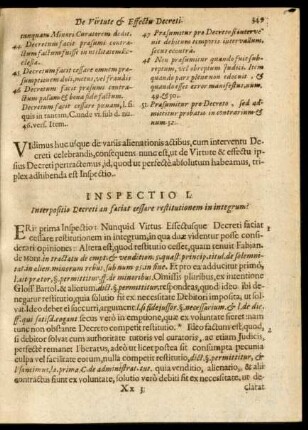 De Virtute & Effectu Decreti. 349
tanquam Minori Curatorem dedit.
44 Decretum facit præsumi contractum
factum fuisse in utilitatem Ecclesiæ.
45 Decretum facit cessare omnem præsumptionem
doli, metus, vel fraudis
46 Decretum facit præsumi contractum
palam & bona fide factum.
Decretum facit cessare pœnam, l. si
quis in tantum, Cunde vi. sub d. nu.
46. vers. Item.
47 Præsumitur pro Decreto si intervenit
debitum temporis intervallum,
secus è contrà.
48 Non præsumitur quando fuit subreptum,
vel obreptum Judici. Item
quando pars citata non
quando
50 Præsumitur pro Decreto, sed admittitur
probatio in contrarium &
num 52.
VIdimus huc usque de variis alienationis actibus, cum interventu Decreti
celebrandis, consequens nunc est, ut de Virtute & effectu ipsius
Decreti pertractemus, id, quod ut perfectè absolutum habeamus, triplex
adhibenda est Inspectio.
INSPECTIO I.
Interpositio Decreti an faciat cessare restitutionem in integrum?
ERit prima Inspectio: Nunquid Virtus Effectusque Decreti faciat
cessare restitutionem in integrum, in qua duæ videntur posse considerari
opiniones: Altera est, quod restitutio cesset, quam tenuit Fabian.
de Mont. in tractatu de empt & venditione, 5. quæst. principal. tit. de solemnitat.
in alien. minorum rebus, sub num. 50. in fine. Et pro ea adducitur primò,
Omissis pluribus, ex intentione
Gloss. Bartol. & aliorum, dict. §. permittitur, respondeas, quod ideo ibi denegatur
restitutio, quia solutio fit ex necessitate Debitori imposita, ut solvat.
Ideo deber ei succurri, argument.
secus verò in emptione, quæ ex voluntate fieret nam
tunc non obstante Decreto competit restitutio. * Ideo factum est, quod,
si debitor solvat cum authoritate tutoris vel curatoris, ac etiam Judicis,
perfectè remanet liberatus, adeò ut licet postea sit consumpta pecunia
culpa vel facilitate eorum, nulla competit restitutio, dict. §. permittitur, &
quia venditio, alienatio, & alii
contractus fiunt ex voluntate, solutio verò debiti fit ex necessitate, ut de-
Xx 3 clarat